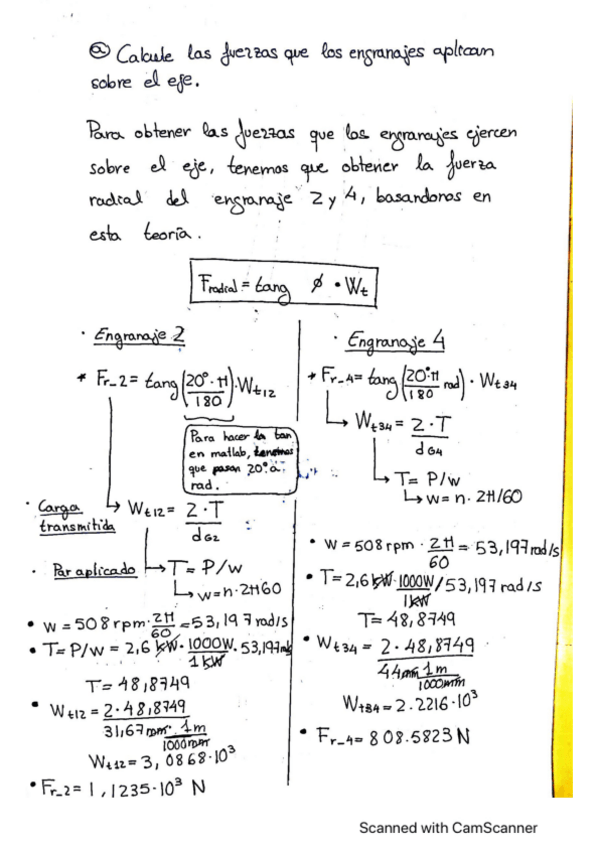 ⓐ Calcule las fuerzas que los engranajes aplican
sobre el eje.
Para obtener las fuerzas que los engranajes ejercen
sobre el eje, tenemos que obtener la fuerza
radial del engranaje 2 y 4, basandonos en
esta teoría.
Fradial = tang ϕ · Wt
· Engranaje 2
* Fr_2 = tang(20°·π/180)·Wt12
Para hacer la tan
en matlab, tenemos
que pasar 20° a
rad.
· Carga transmitida → Wt12 = 2·T/dG2
· Par aplicado → T = P/w
→ w = n·2π60
• w = 508 rpm·2π/60 = 53,197 rad/s
• T = P/w = 2,6 kW·1000W/1kW·53,197
T = 48,8749
• Wt12 = 2·48,8749/31,67 mm·1m/1000mm
Wt12 = 3,0868·10³
• Fr_2 = 1,1235·10³ N
· Engranaje 4
* Fr_4 = tang(20°·π/180 rad)·Wt34
→ Wt34 = 2·T/dG4
→ T = P/w
→ w = n·2π/60
• w = 508 rpm·2π/60 = 53,197 rad/s
• T = 2,6 kW·1000W/1kW/53,197 rad/s
T = 48,8749
• Wt34 = 2·48,8749/44mm 1m/1000mm
Wt34 = 2.2216·10³
• Fr_4 = 808.5823 N
Scanned with CamScanner